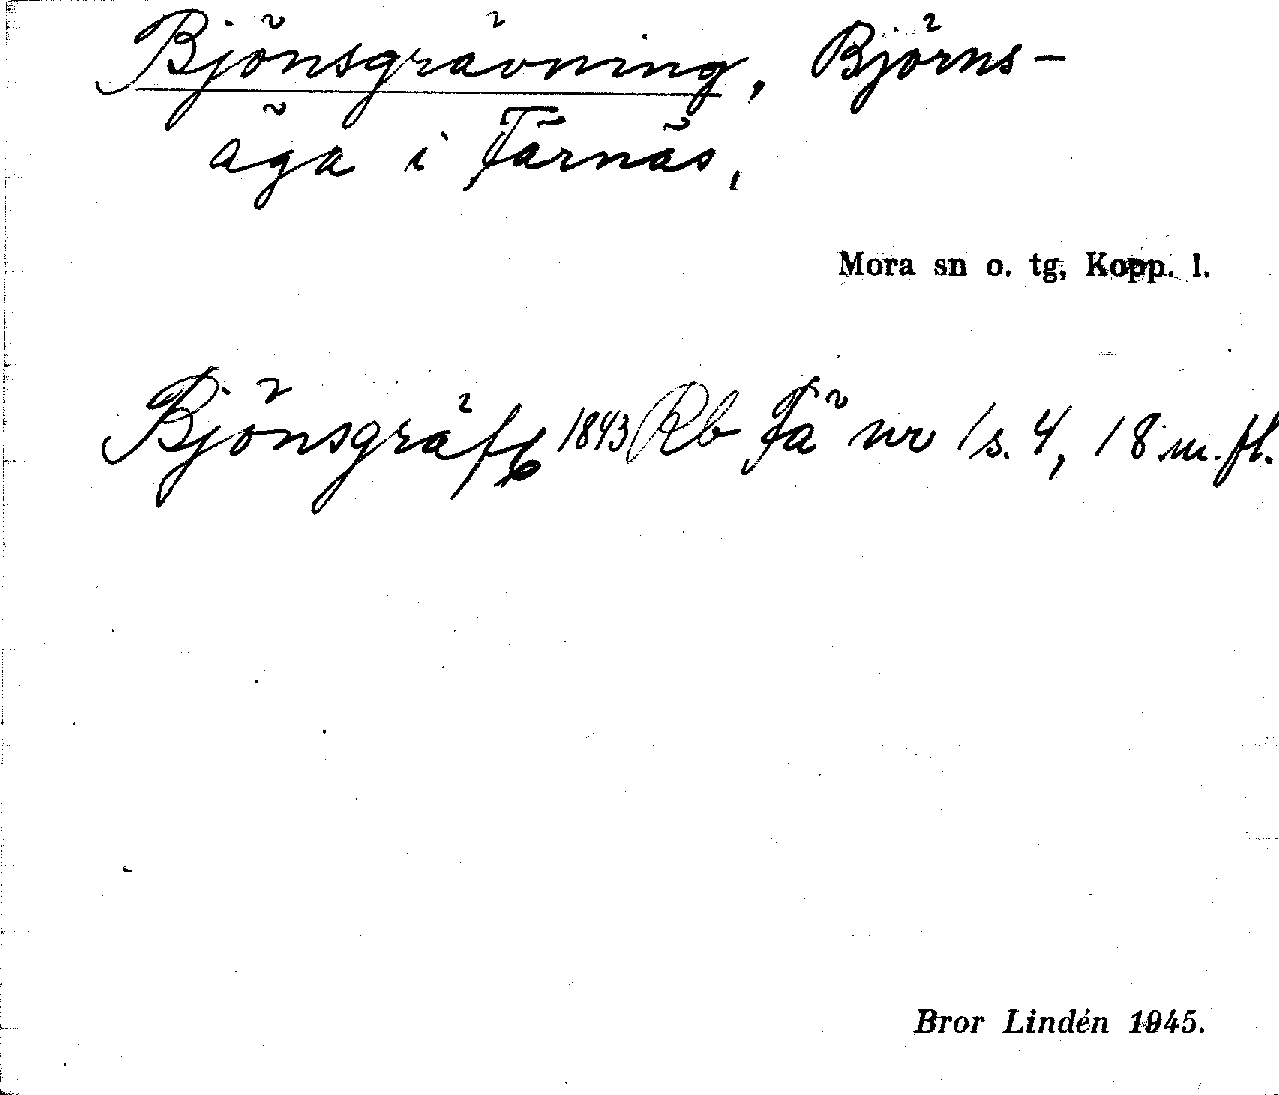 Björnsgrävning, Björns-
äga i Färnäs,
Mora sn o. tg, Kopp. l.
Bjönsgräf 1843 Rb Fä nr 1 s. 4, 18 m. fl.
Bror Lindén 1945.